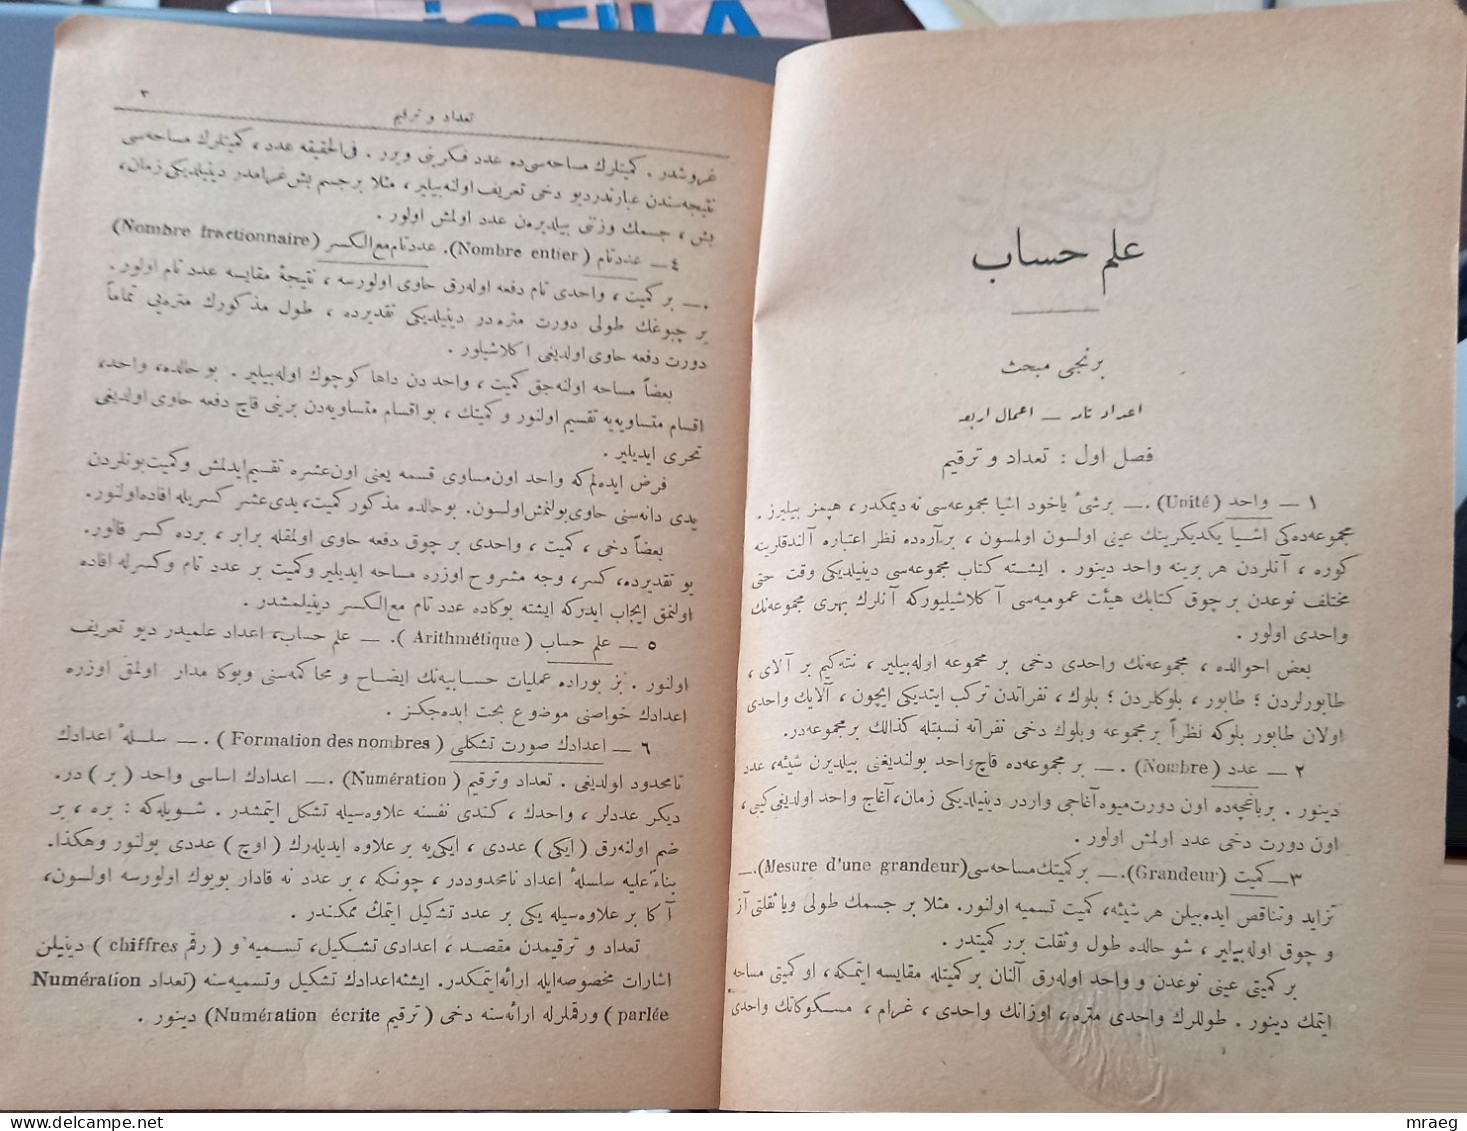 علم حساب
برنجی مبحث
اعداد تامه — اعمال اربعه
فصل اول : تعداد و ترقیم
١ — واحد (Unité). — برشیء یاخود اشیا مجموعه‌سی نه دیمکدر، هپمز بیلیرز .
مجموعه‌ده‌کی اشیا یکدیکرینك عینی اولسون اولمسون ، بر آره‌ده نظر اعتباره آلندقلرینه
کوره ، آنلردن هر برینه واحد دینور . ایشته کتاب مجموعه‌سی دینیلدیکی وقت حتی
مختلف نوعدن بر چوق کتابك هیئت عمومیه‌سی آکلاشیلیورکه آنلرك بهری مجموعه‌نك
واحدی اولور .
بعض احوالده ، مجموعه‌نك واحدی دخی بر مجموعه اوله‌بیلیر ، نته‌کیم بر آلای ،
طابورلردن ؛ طابور ، بلوکلردن ؛ بلوك ، نفراتدن ترکب ایتدیکی ایچون ، آلایك واحدی
اولان طابور بلوکه نظراً بر مجموعه وبلوك دخی نفراته نسبتله کذالك بر مجموعه‌در.
٢ — عدد (Nombre) . — بر مجموعه‌ده قاچ واحد بولندیغنی بیلدیرن شیئه، عدد
دینور . بر باغچه‌ده اون دورت میوه آغاجی واردر دینیلدیکی زمان، آغاج واحد اولدیغی کبی،
اون دورت دخی عدد اولمش اولور .
٣ — کمیت (Grandeur). — بر کمیتك مساحه‌سی (Mesure d'une grandeur). —
تزاید وتناقص ایده‌بیلن هر شیئه، کمیت تسمیه اولنور. مثلا بر جسمك طولی ویا ثقلتی آز
و چوق اوله‌بیلیر ، شو حالده طول وثقلت برر کمیتدر.
بر کمیتی عینی نوعدن و واحد اوله‌رق آلنان بر کمیتله مقایسه ایتمکه، او کمیتی مساحه
ایتمك دینور . طوللرك واحدی متره ، اوزانك واحدی ، غرام ، مسکوکاتك واحدی
٣
تعداد و ترقیم
غروشدر . کمیتلرك مساحه‌سی‌ده عدد فکرینی ویرر . فی‌الحقیقه عدد، کمیتلرك مساحه‌سی
نتیجه‌سندن عبارتدردیو دخی تعریف اولنه‌بیلیر ، مثلا بر جسم بش غرامدر دینیلدیکی زمان،
بش ، جسمك وزنی بیلدیره‌ن عدد اولمش اولور .
٤ — عددتام (Nombre entier). عددتام مع‌الکسر (Nombre fractionnaire)
. — بر کمیت ، واحدی تام دفعه اوله‌رق حاوی اولورسه ، نتیجهٔ مقایسه عدد تام اولور .
بر چبوغك طولی دورت متره‌در دینیلدیکی تقدیرده ، طول مذکورك متره‌یی تماماً
دورت دفعه حاوی اولدیغی اکلاشیلور .
بعضاً مساحه اولنه‌جق کمیت ، واحد دن داها کوچوك اوله‌بیلیر . بو حالده، واحد،
اقسام متساویه‌یه تقسیم اولنور و کمیتك ، بو اقسام متساویه‌دن برینی قاچ دفعه حاوی اولدیغی
تحری ایدیلیر .
فرض ایده‌لم‌که واحد اون‌مساوی قسمه یعنی اون‌عشره تقسیم‌ایدلمش وکمیت‌بونلردن
یدی دانه‌سنی حاوی‌بولنمش‌اولسون. بوحالده مذکور کمیت، یدی‌عشر کسریله افاده‌اولنور.
بعضاً دخی ، کمیت ، واحدی بر چوق دفعه حاوی اولمقله برابر ، برده کسر قالور.
بو تقدیرده، کسر، وجه مشروح اوزره مساحه ایدیلیر وکمیت بر عدد تام وکسرله افاده
اولنمق ایجاب ایدرکه ایشته بوکاده عدد تام مع‌الکسر دینیلمشدر.
٥ — علم حساب (Arithmétique). — علم حساب، اعداد علمیدر دیو تعریف
اولنور . بز بوراده عملیات حسابیه‌نك ایضاح و محاکمه‌سنی وبوکا مدار اولمق اوزره
اعدادك خواصنی موضوع بحث ایده‌جکز .
٦ — اعدادك صورت تشکلی (Formation des nombres). — سلسلهٔ اعدادك
نامحدود اولدیغی . تعداد وترقیم (Numération). — اعدادك اساسی واحد (بر) در.
دیکر عددلر ، واحدك ، کندی نفسنه علاوه‌سیله تشکل ایتمشدر . شویله‌که : بره ، بر
ضم اولنه‌رق (ایکی) عددی ، ایکی‌یه بر علاوه ایدیله‌رك (اوچ) عددی بولنور وهکذا.
بناءً علیه سلسلهٔ اعداد نامحدوددر ، چونکه ، بر عدد نه قادار بویوك اولورسه اولسون،
آکا بر علاوه‌سیله یکی بر عدد تشکیل ایتمك ممکندر .
تعداد و ترقیمدن مقصد ، اعدادی تشکیل، تسمیه و (رقم chiffres) دینیلن
اشارات مخصوصه‌ایله ارائه‌ایتمکدر. ایشته‌اعدادك تشکیل وتسمیه‌سنه (تعداد Numération
parlée) ورقملرله ارائه‌سنه دخی (ترقیم Numération écrite) دینور .
mraeg